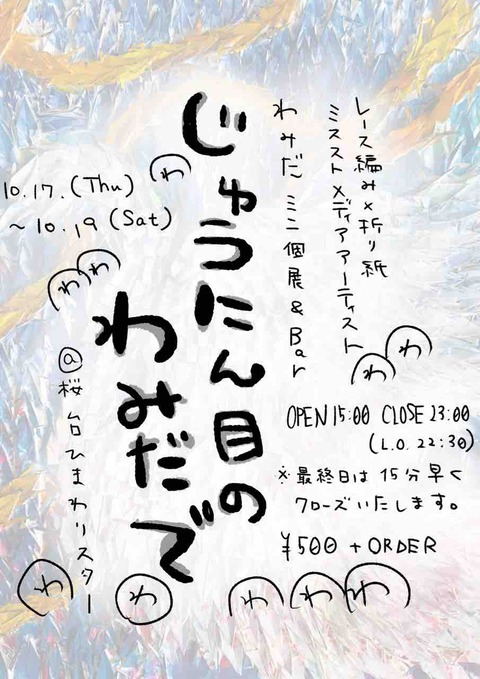 レース編み×折り紙
ミスストメディアアーティスト
わみだ ミニ個展&Bar
じゅうたん目の
わみだで
10.17.(Thu)
~10.19(Sat)
@桜台ひまわりスター
OPEN15:00 CLOSE23:00
(L.O.22:30)
※最終日は15分早く
クローズいたします。
¥500+ORDER
わ
わ
わ
わ
わ
わ
わ
わ
わ
わ